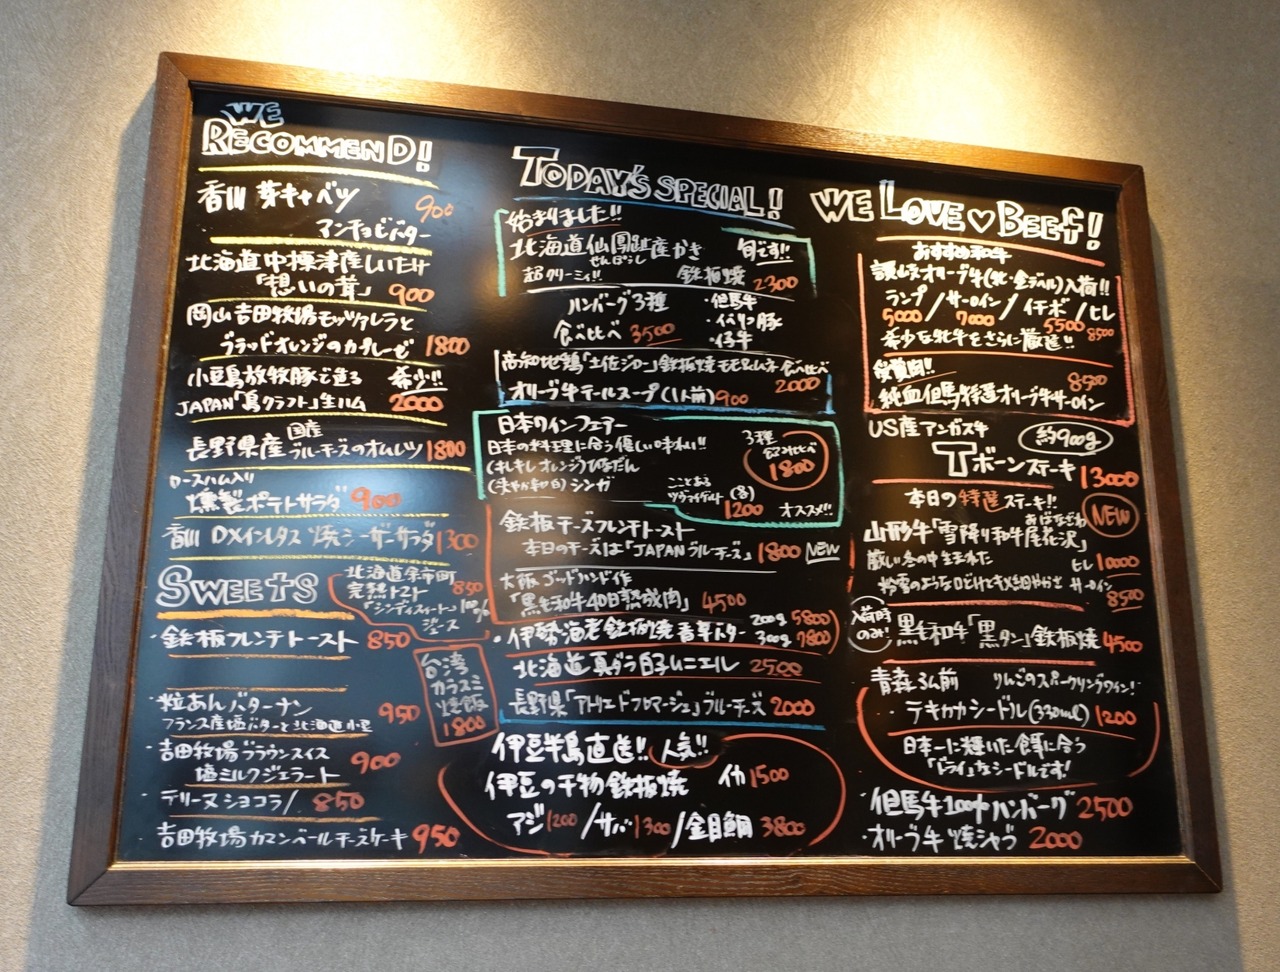 WE
RECOMMEND!
香川 芽キャベツ
アンチョビバター 900
北海道中標津産しいたけ
「想いの茸」 900
岡山吉田牧場モッツァレラと
ブラッドオレンジのカプレーゼ 1800
小豆島放牧豚で造る 希少!!
JAPAN「島クラフト」生ハム 2000
長野県産 国産 ブルーチーズのオムレツ 1800
ロースハム入り
燻製ポテトサラダ 900
香川 DXインレタス 焼シーザーサラダ 1300
SWEETS
北海道余市町
完熟トマト 850
「シンディスイート」100%
ジュース
・鉄板フレンチトースト 850
台湾
カラスミ
焼飯
1800
・粒あんバターナン 950
フランス産塩バターと北海道小豆
・吉田牧場ブラウンスイス
塩ミルクジェラート 900
・テリーヌショコラ/ 850
・吉田牧場カマンベールチーズケーキ 950
TODAY'S SPECIAL!
始まりました!!
北海道仙鳳趾産かき 旬です!!
せんぽうし
超クリーミィ!! 鉄板焼 2300
ハンバーグ3種
食べ比べ 3500
・但馬牛
・イベリコ豚
・仔牛
高知地鶏「土佐ジロー」鉄板焼 モモ&ムネ 食べ比べ 2000
オリーブ牛テールスープ(1人前) 900
日本のワインフェアー
日本の料理に合う優しい味わい!!
(オレンジ)ひなだん
(爽やか和白)シンガ
3種
飲み比べ
1800
こことある
ツヴァイゲルト (赤)
1200 オススメ!!
鉄板チーズフレンチトースト
本日のチーズは「JAPANブルーチーズ」 1800 NEW
大阪ゴッドハンド作
「黒毛和牛40日熟成肉」 4500
・伊勢海老鉄板焼 香草バター 200g 5800
300g 7800
北海道真ダラ白子ムニエル 2500
長野県「アトリエ・ド・フロマージュ」ブルーチーズ 2000
伊豆半島直送!! 人気!!
伊豆の干物鉄板焼 イカ 1500
アジ 1200 /サバ 1300 /金目鯛 3800
WE LOVE♡BEEF!
おすすめ和牛
讃岐オリーブ牛(牝・金ラベル)入荷!!
ランプ/サーロイン/イチボ/ヒレ
5000 7000 5500 8500
希少な牝牛をさらに厳選!!
受賞肉!! 8500
純血但馬特選オリーブ牛サーロイン
US産アンガス牛 約900g
Tボーンステーキ 13000
本日の特選ステーキ!! NEW
山形牛「雪降り和牛尾花沢」
おばなざわ
厳しい冬の中生まれた ヒレ 10000
粉雪のような口どけとキメ細やかさ サーロイン 8500
入荷時
のみ! 黒毛和牛「黒タン」鉄板焼 4500
青森弘前 りんごのスパークリングワイン!
・テキカカシードル(330ml) 1200
日本一に輝いた餌に合う
「ドライ」なシードルです!
・但馬牛100%ハンバーグ 2500
・オリーブ牛 焼シャブ 2000